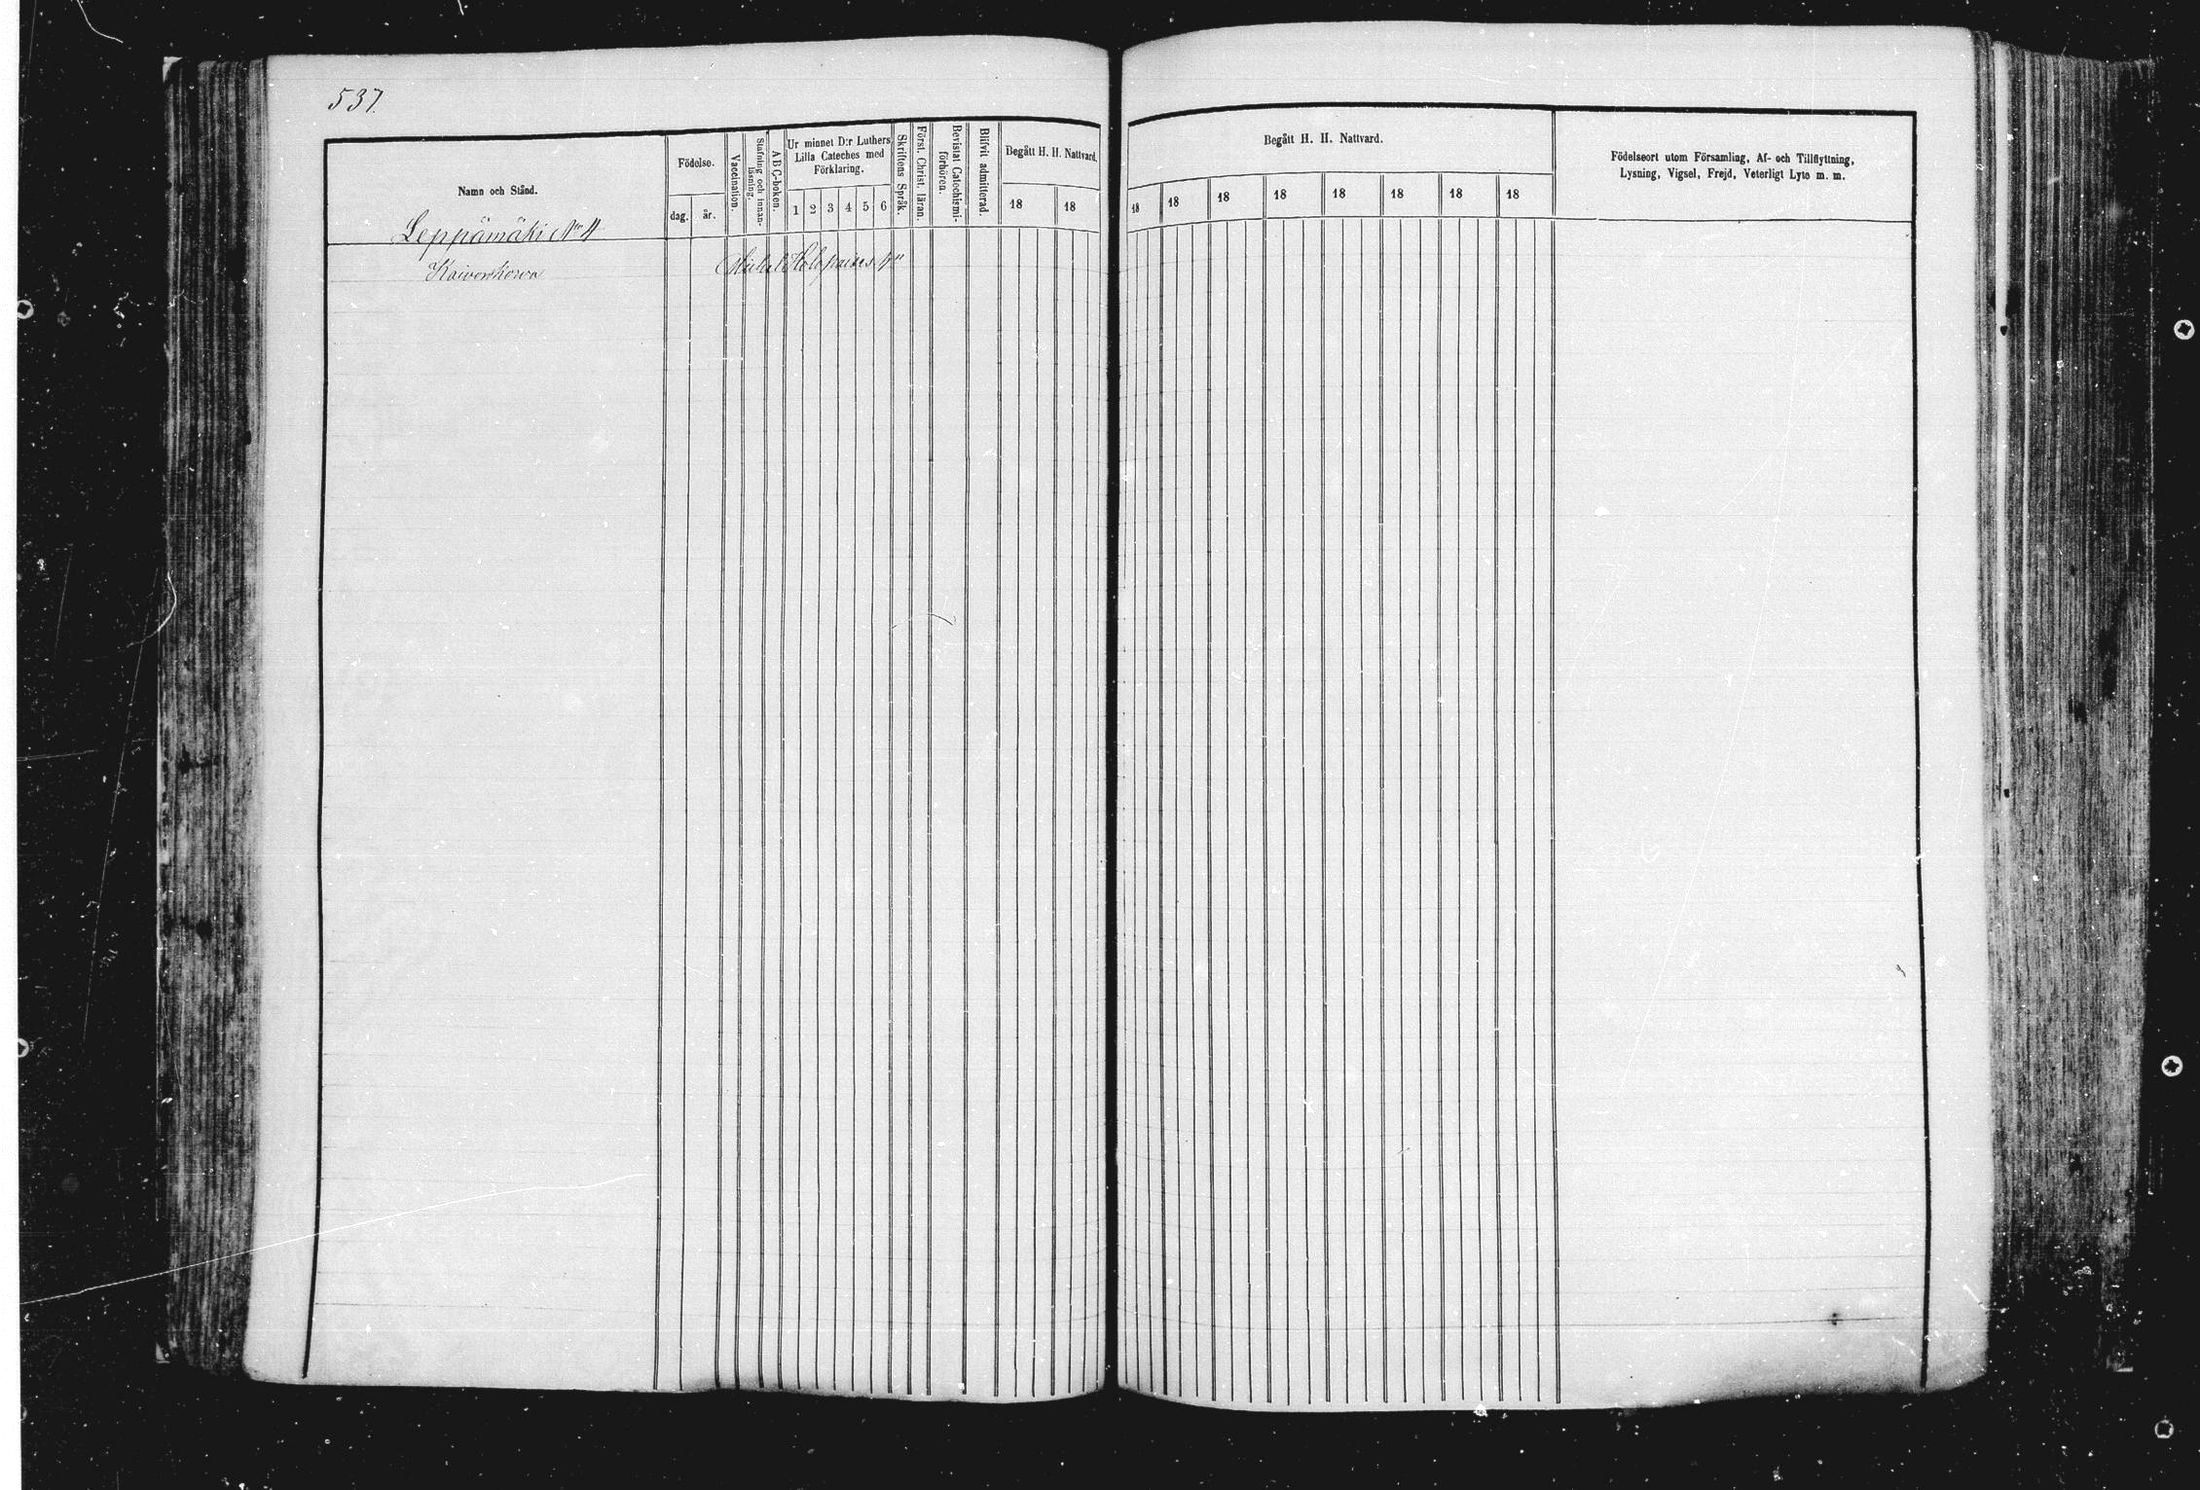 537.
Namn och Stånd.
Födelse.
dag.
år.
Vaccination.
Stafning och innan-
läsning.
A B C-boken.
Ur minnet D:r Luthers
Lilla Cateches med
Förklaring.
1 2 3 4 5 6
Skriftens Språk.
Först. Christ. läran.
Bevistat Catechismi-
förhören.
Blifvit admitterad.
Begått H. H. Nattvard.
18 18
Begått H. H. Nattvard.
18 18 18 18 18 18 18 18
Födelseort utom Församling, Af- och Tillflyttning,
Lysning, Vigsel, Frejd, Veterligt Lyte m. m.
Leppämäki No 4
Michel Holopaines